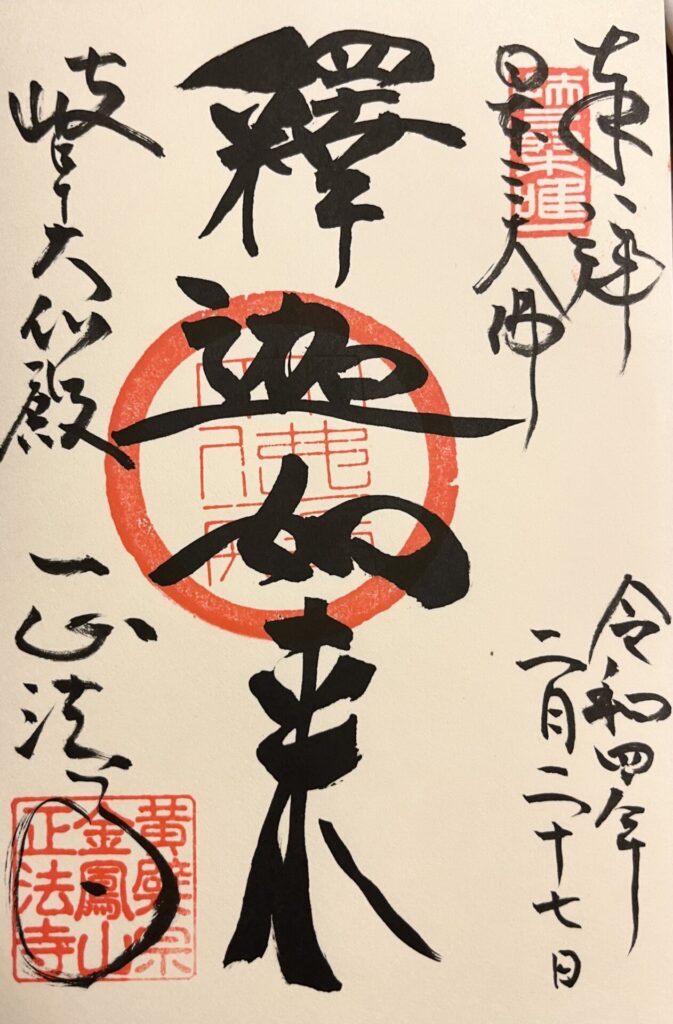 奉拝
日本三大佛
令和四年
二月二十七日
釋迦如来
岐阜大仏殿
正法寺
黄檗宗
金鳳山
正法寺